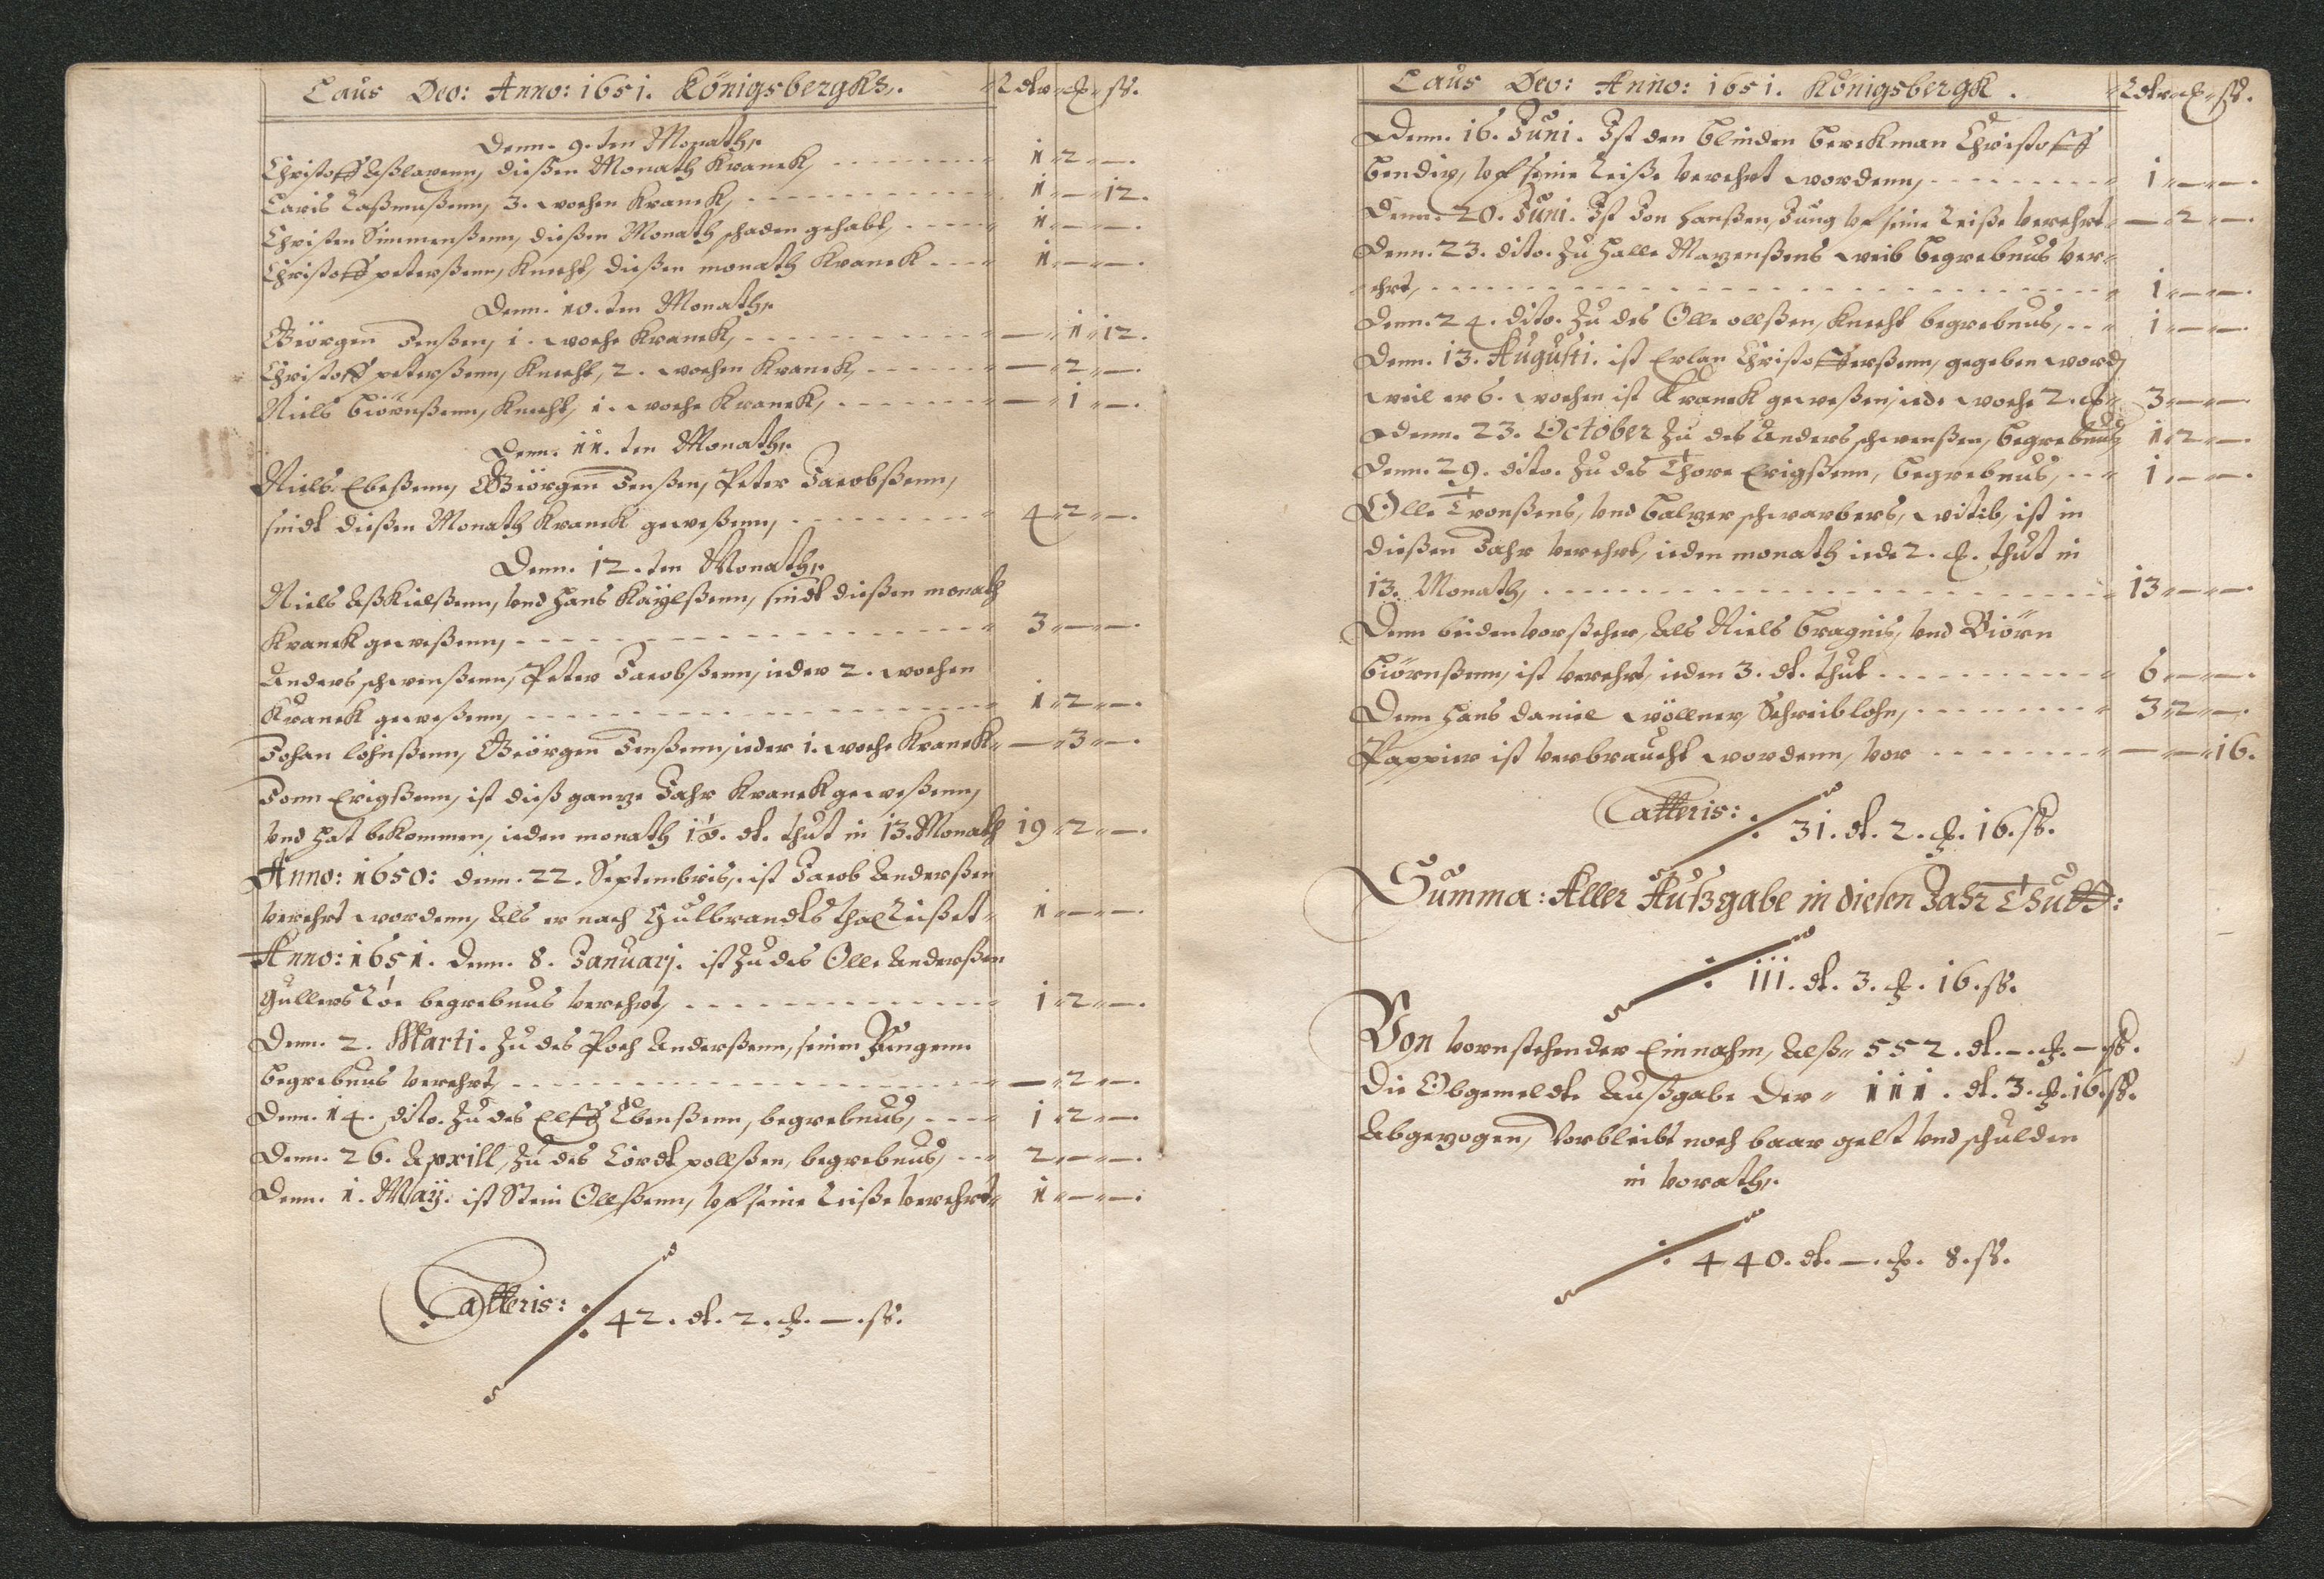 Laus Deo: Anno: 1651. Königsbergks. Rdlr. ₰ ß.
Denn. 9. ten Monath,
Christoff Aßlarenn, dießen Monath Kranck, 1 2 —.
Laris Raßmußenn, 3. wochen Kranck, 1 — 12.
Christen Simmenßenn, dießen Monath schaden gehabt, 1 — —.
Christoff peterßenn, Knecht, dießen monath Kranck 1 — —.
Denn. 10. ten Monath,
Giörgen Jenßen, 1. woche Kranck, — 1 12.
Christoff peterßenn, Knecht, 2. wochen Kranck, — 2 —.
Niels Biörnßenn, Knecht, 1. woche Kranck, — 1 —.
Denn. 11. ten Monath,
Niels Ebeßenn, Giörgen Jenßen, Peter Jacobßenn,
sindt dießen Monath Kranck geweßenn, 4 2 —.
Denn. 12. ten Monath,
Niels Aßkielßenn, vnd Hans Kaÿlßenn, sindt dießen monath
Kranck geweßenn, 3 — —.
Anders schwenßenn, Peter Jacobßenn, ieder 2. wochen
Kranck geweßenn, 1 2 —.
Johan löhnßenn, Giörgen Jenßenn, ieder 1. woche Kranck — 3 —.
Jonn Erigßenn, ist dieß ganze Jahr Kranck geweßenn,
vnd hat bekommen, ieden monath 1½. dt. thut in 13. Monath 19 2 —.
Anno: 1650: denn. 22. Septembris, ist Jacob Anderßen
verehrt wordenn, als er nach Gulbrandts thal Reißet 1 — —.
Anno: 1651. denn. 8. Januarj. ist zu des Olle Anderßen
Gullers Röe begrebnus verehrt, 1 2 —.
Denn. 2. Marti. zu des Poch Anderßenn, seinen Jungenn
begrebnus verehrt, — 2 —.
Denn. 14. dito. zu des Elff Ebenßenn, begrebnus, 1 2 —.
Denn. 26. Aprill, zu des Lördt pollßen, begrebnus, 2 — —.
Denn. 1. Maÿ. ist Stein Ollßenn, vf seine Reiße verehrt 1 — —.
Latteris: ./. 42. dt. 2. ₰. —. ß.
Laus Deo: Anno: 1651. Königsbergk. Rdlr. ₰ ß.
Denn. 16. Juni. Ist den blinden berckman Christoff
bendix, vf seine Reiße verehrt wordenn, 1 — —.
Denn. 20. Juni. Ist Jon Hanßen, Jung vf seine Reiße verehrt — 2 —.
Denn. 23. dito. zu Halle Magenßens weib begrebnus ver-
ehrt, 1 — —.
Denn. 24. dito. zu des Olle ollßen, Knecht begrebnus, 1 — —.
Denn. 13. Augusti. ist Erlan Christofferßenn, gegeben word,
weil er 6. wochen ist Kranck geweßen, iede woche 2. ₰ 3 — —.
denn. 23. October zu des Anders schwenßen, begrebnus 1 2 —.
Denn. 29. dito. zu des Thore Erigßenn, begrebnus, 1 — —.
Olle Tronßens, vnd balzer schwarbers, witib, ist in
dießen Jahr verehrt, ieden monath iede 2. ₰. thut in
13. Monath, 13 — —.
Denn beiden vorßteher, als Niels Bragnis, vnd Biörn
biörnßenn, ist verehrt, ieden 3. dt. thut 6 — —.
Denn Hans daniel wöllner, Schreiblohn, 3 2 —.
Pappier ist verbraucht wordenn, vor — — 16.
Latteris: ./. 31. dt. 2. ₰. 16. ß.
Summa: Aller Außgabe in diesen Jahr Thutt:
./. 111. dt. 3. ₰. 16. ß.
Von vornstehender Einnahm, alß 552. dt. —. ₰. — ß.
Die Obgemeldte Außgabe der 111. dt. 3. ₰. 16. ß.
Abgezogen, Vorbleibt noch baar gelt vnd schulden
in vorath,
./. 440. dt. —. ₰. 8. ß.